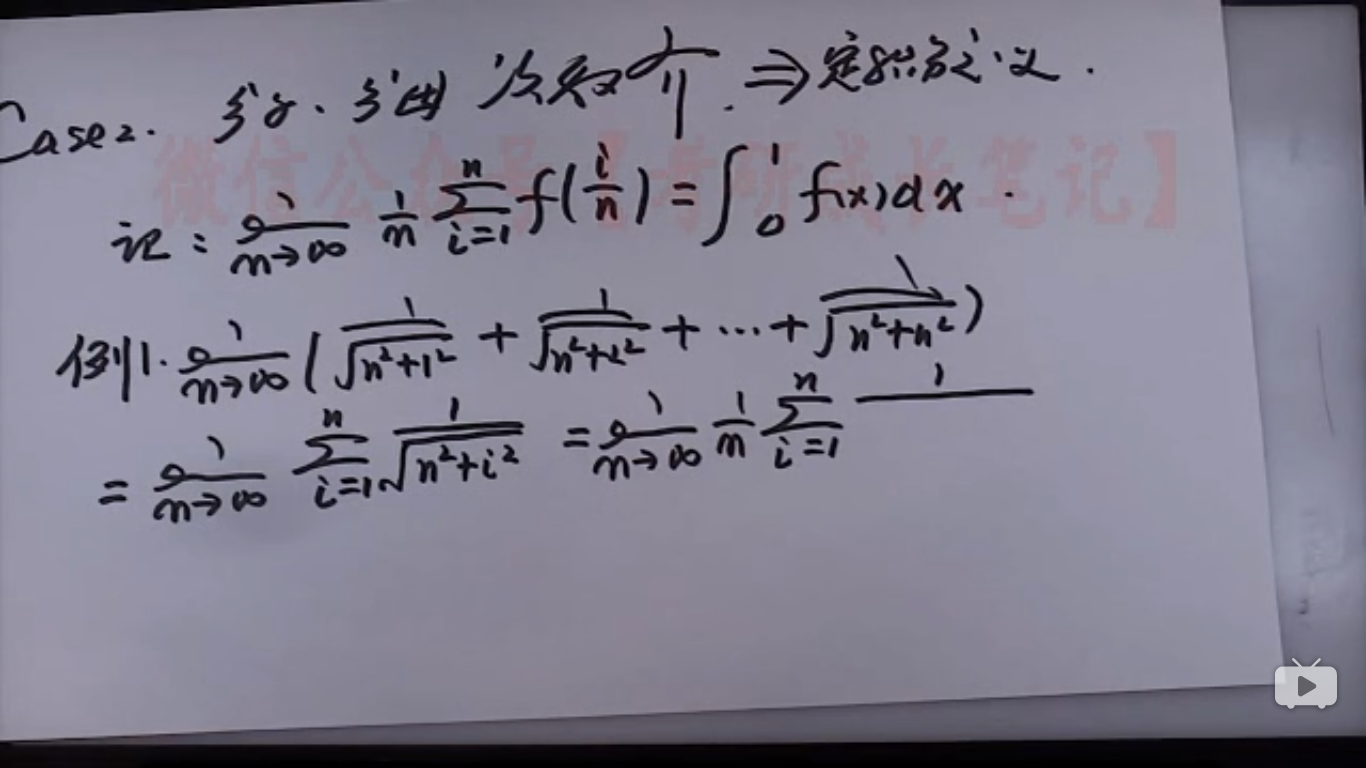 Case2. 分子、分母次数齐. ⇒ 定积分定义.
微信公众号【考研成长笔记】
记: lim n→∞ 1/n ∑ i=1 n f(i/n) = ∫ 0 1 f(x)dx.
例1. lim n→∞ ( 1/√(n²+1²) + 1/√(n²+2²) + ... + 1/√(n²+n²) )
= lim n→∞ ∑ i=1 n 1/√(n²+i²) = lim n→∞ 1/n ∑ i=1 n 1/